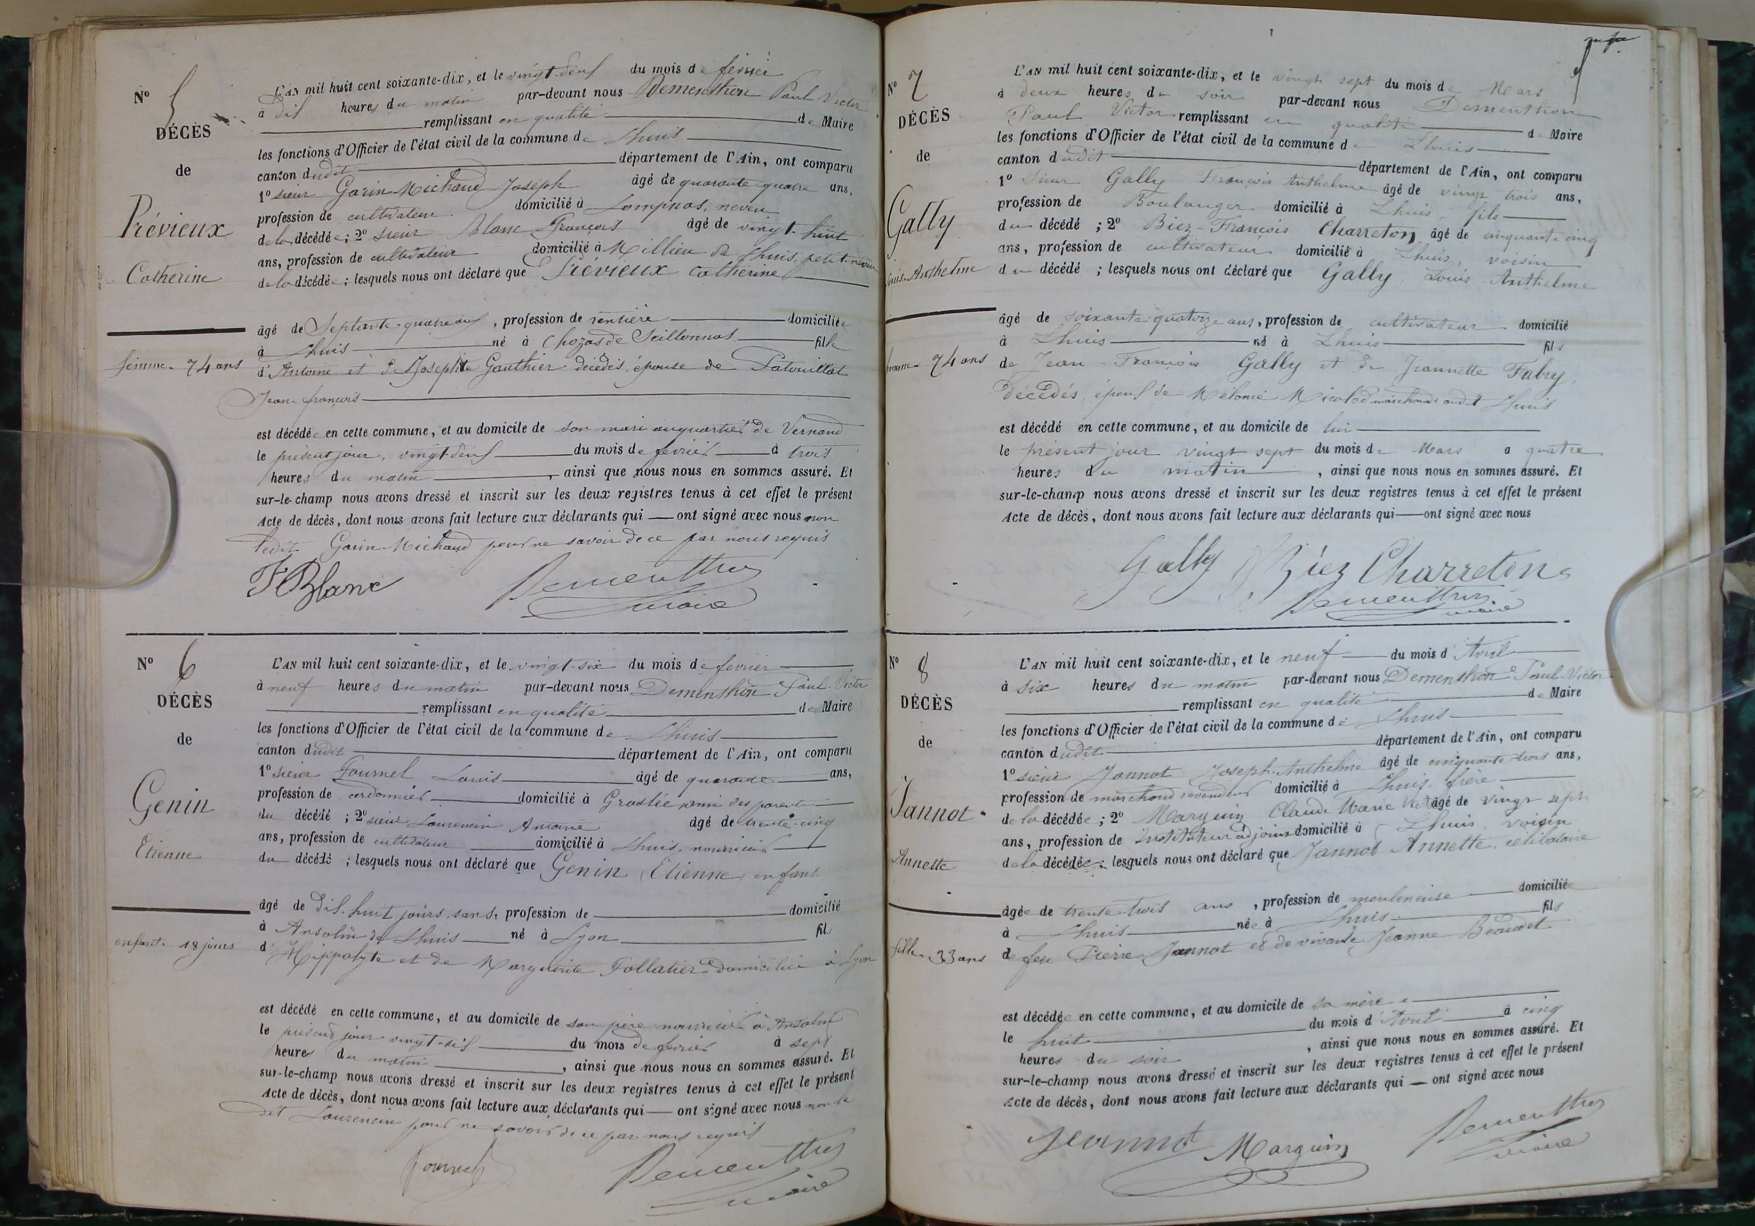 N° 5
DÉCÈS
de
Prévieux
Catherine
femme. 74 ans
L'AN mil huit cent soixante-dix, et le vingt-deux du mois de février
à dix heures du matin par-devant nous Dementhon Paul Victor
remplissant en qualité de Maire
les fonctions d'Officier de l'état civil de la commune de Lhuis
canton dudit département de l'Ain, ont comparu
1° sieur Garin-Michaud Joseph âgé de quarante-quatre ans,
profession de cultivateur domicilié à Lompnas, neveu
de la décédée ; 2° sieur Blanc François âgé de vingt-huit
ans, profession de cultivateur domicilié à Millieu de Lhuis, petit-neveu
de la décédée ; lesquels nous ont déclaré que Prévieux Catherine
âgé de Septante-quatre ans, profession de rentière domiciliée
à Lhuis né à Chozas de Seillonnas fille
d'Antoine et de Josephte Gauthier décédés, épouse de Patouillat
Jean françois
est décédée en cette commune, et au domicile de son mari au quartier de Vernand
le présent jour, vingt-deux du mois de février à trois
heures du matin, ainsi que nous nous en sommes assuré. Et
sur-le-champ nous avons dressé et inscrit sur les deux registres tenus à cet effet le présent
Acte de décès, dont nous avons fait lecture aux déclarants qui ont signé avec nous non
ledit Garin-Michaud pour ne savoir de ce par nous requis
F Blanc Dementhon
maire
N° 6
DÉCÈS
de
Genin
Etienne
enfant. 18 jours
L'AN mil huit cent soixante-dix, et le vingt-six du mois de février
à neuf heures du matin par-devant nous Dementhon Paul Victor
remplissant en qualité de Maire
les fonctions d'Officier de l'état civil de la commune de Lhuis
canton dudit département de l'Ain, ont comparu
1° sieur Fournel Louis âgé de quarante ans,
profession de cordonnier domicilié à Groslée ami des parents
du décédé ; 2° sieur Laurencin Antoine âgé de trente-cinq
ans, profession de cultivateur domicilié à Lhuis, nourricier
du décédé ; lesquels nous ont déclaré que Genin Etienne enfant
âgé de dix-huit jours, sans profession de domicilié
à Ansolin de Lhuis né à Lyon fil
d'Hippolyte et de Marguerite Follatier domiciliés à Lyon
est décédé en cette commune, et au domicile de son père nourricier à Ansolin
le présent jour vingt-six du mois de février à sept
heures du matin, ainsi que nous nous en sommes assuré. Et
sur-le-champ nous avons dressé et inscrit sur les deux registres tenus à cet effet le présent
Acte de décès, dont nous avons fait lecture aux déclarants qui ont signé avec nous non le
dit Laurencin pour ne savoir de ce par nous requis
Fournel Dementhon
maire
N° 7
DÉCÈS
de
Gally
Louis-Anthelme
homme. 74 ans
L'AN mil huit cent soixante-dix, et le vingt sept du mois de Mars
à deux heures du soir par-devant nous Dementhon
Paul Victor remplissant en qualité de Maire
les fonctions d'Officier de l'état civil de la commune de Lhuis
canton dudit département de l'Ain, ont comparu
1° Sieur Gally François Anthelme âgé de vingt trois ans,
profession de Boulanger domicilié à Lhuis, fils
du décédé ; 2° Biez-François Charreton âgé de cinquante cinq
ans, profession de cultivateur domicilié à Lhuis, voisin
du décédé ; lesquels nous ont déclaré que Gally Louis Anthelme
âgé de soixante quatorze ans, profession de cultivateur domicilié
à Lhuis né à Lhuis fils
de Jean-François Gally et de Jeannette Fabry,
décédés, époux de Mélanie Micolod marchande audit Lhuis
est décédé en cette commune, et au domicile de lui
le présent jour vingt sept du mois de Mars à quatre
heures du matin, ainsi que nous nous en sommes assuré. Et
sur-le-champ nous avons dressé et inscrit sur les deux registres tenus à cet effet le présent
Acte de décès, dont nous avons fait lecture aux déclarants qui ont signé avec nous
Gally Biez Charreton
Dementhon
maire
N° 8
DÉCÈS
de
Jannot
Annette
fille. 33 ans
L'AN mil huit cent soixante-dix, et le neuf du mois d'Avril
à six heures du matin par-devant nous Dementhon Paul-Victor
remplissant en qualité de Maire
les fonctions d'Officier de l'état civil de la commune de Lhuis
canton dudit département de l'Ain, ont comparu
1° sieur Jannot Joseph-Anthelme âgé de cinquante trois ans,
profession de marchand revendeur domicilié à Lhuis, frère
de la décédée ; 2° Marquin Claude Marie Victor âgé de vingt sept
ans, profession de Instituteur adjoint domicilié à Lhuis, voisin
de la décédée ; lesquels nous ont déclaré que Jannot Annette, célibataire
âgée de trente-trois ans, profession de moulineuse domiciliée
à Lhuis née à Lhuis fils
de feu Pierre Jannot et de vivante Jeanne Beaudet
est décédée en cette commune, et au domicile de sa mère
le huit du mois d'Avril à cinq
heures du soir, ainsi que nous nous en sommes assuré. Et
sur-le-champ nous avons dressé et inscrit sur les deux registres tenus à cet effet le présent
Acte de décès, dont nous avons fait lecture aux déclarants qui ont signé avec nous
Jeannot Marquin Dementhon
maire